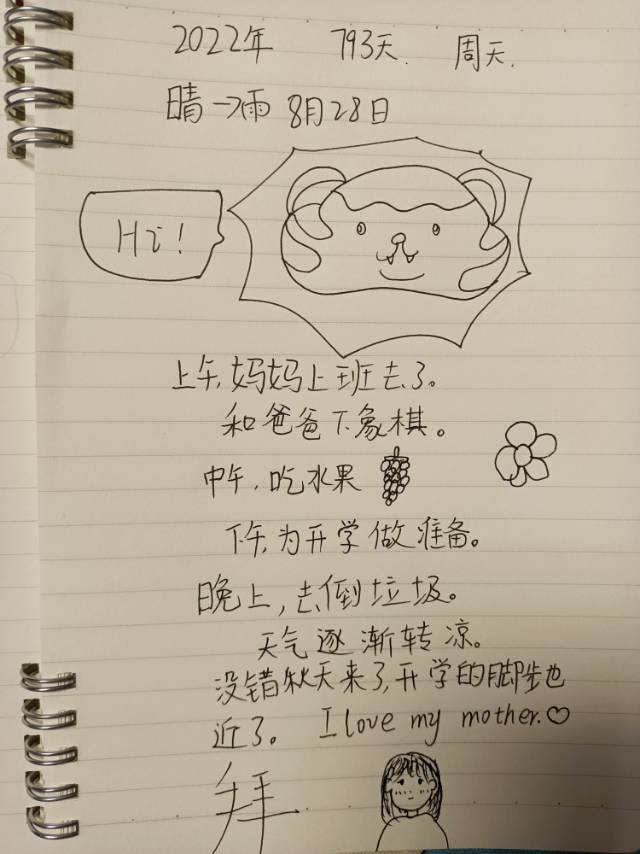 2022年 793天. 周天.
晴→雨 8月28日
Hi!
上午,妈妈上班去了。
和爸爸下象棋。
中午,吃水果
下午,为开学做准备。
晚上,去倒垃圾。
天气逐渐转凉。
没错秋天来了,开学的脚步也
近了。 I love my mother.♡
拜